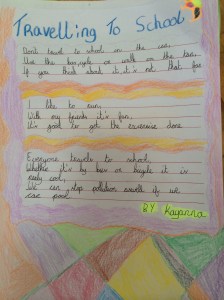 Travelling To School
Don't travel to school in the car,
Use the bus, cycle or walk on the tar,
If you think about it, it's not that far.
I like to run,
With my friends it's fun,
It's good to get the excersise done.
Everyone travels to school,
Whether it's by bus or bicycle it is
really cool,
We can stop pollution overall if we
car pool.
BY Kayanna